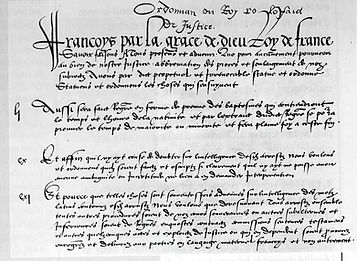 Ordonnan du Roy
De Justice.
Francoys par la grace de dieu Roy de france
Savoir faisons A tous presens et advenir Que pour aucunement pourveoir
au bien de nostre Justice abbreviation des proces et soulagement de noz
subiectz Avons par edict perpetuel et irrevocable statue et ordonne
Statuons et ordonnons les choses qui sensuivent
Aussi sera fait en forme de preuve des baptesmes qui contiendront
le temps et lheure de la nativite et par lextraict dudict se
prouver le temps de maiorite ou minorite et fera plaine foy a ceste fin
cx Et affin quil ny ayt cause de doubter sur lintelligence desdictz arrestz Nous voulons
et ordonnons quilz soient faictz et escriptz si clerement quil ny ayt ne puisse avoir
aucune ambiguite ou incertitude ne lieu a en demander interpretation
cxi Et pource que telles choses sont souventesfois advenues sur lintelligence des motz
latins contenuz esdictz arrestz Nous voulons que doresnavant tous arrestz ensemble
toutes autres procedures soient de noz cours souveraines ou autres subalternes et
inferieures soient de registres enquestes contractz commissions sentences testamens
et autres quelzconques actes et exploictz de Justice ou qui en dependent soient prononcez
enregistrez et delivrez aux parties en langage maternel francoys et non autrement